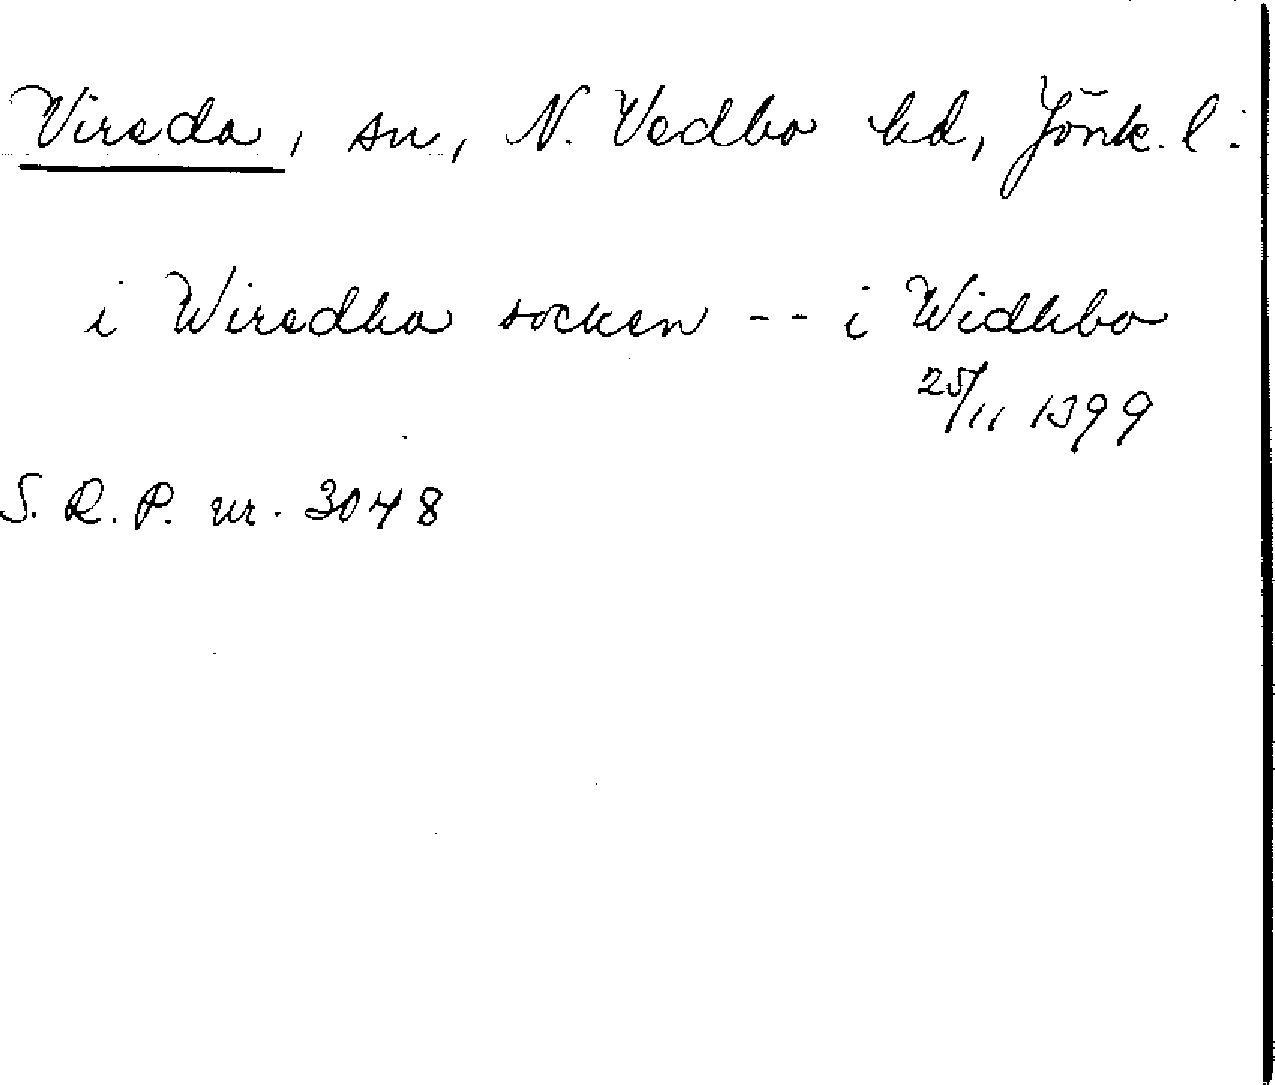 Vireda, sn, N. Vedbo hd, Jönk. l.
i Wiredha socken -- i Widhbo
25/11 1399
S. R. P. nr. 3048